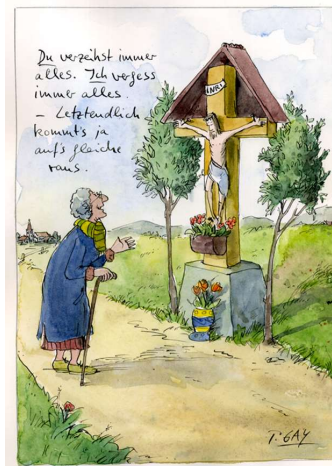 Du verzeihst immer
alles. Ich vergess
immer alles
– Letztendlich
kommts ja
auf's gleiche
raus.
INRI
T: GAY